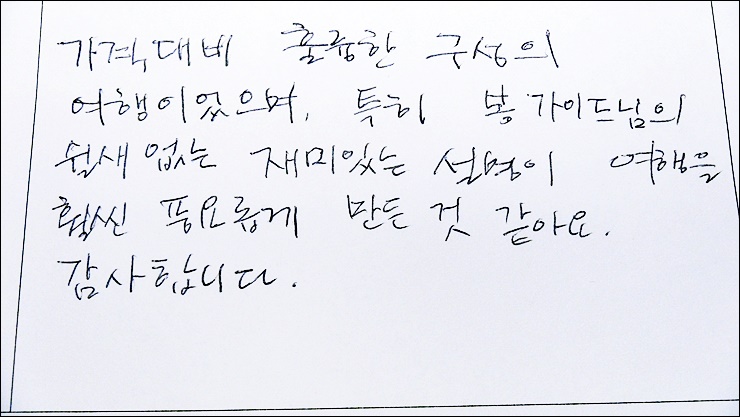 가격대비 훌륭한 구성의
여행이었으며, 특히 봉가이드님의
쉴새없는 재미있는 설명이 여행을
훨씬 풍요롭게 만든 것 같아요.
감사합니다.